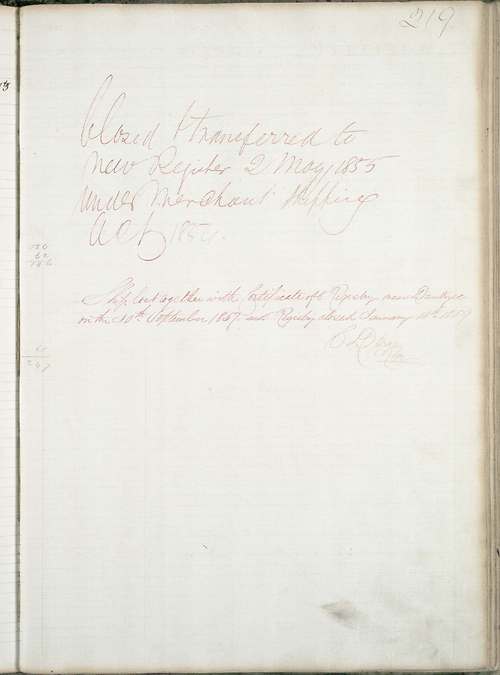 219
Closed & transferred to
New Register 2 May 1855
under Merchant Shipping
Act 1854.
Ship lost together with Certificate of Registry near
on the 10th September 1857 and Registry closed January 1857